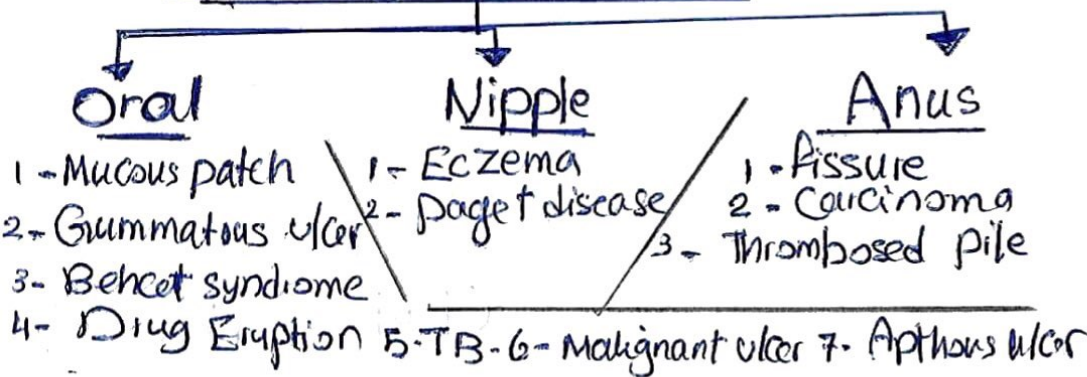 Oral
1-Mucous patch
2-Gummatous ulcer
3-Behcet syndrome
4-Drug Eruption 5-TB-6-Malignant ulcer 7-Apthous ulcer
Nipple
1-Eczema
2-paget disease
Anus
1-fissure
2-Carcinoma
3-Thrombosed pile